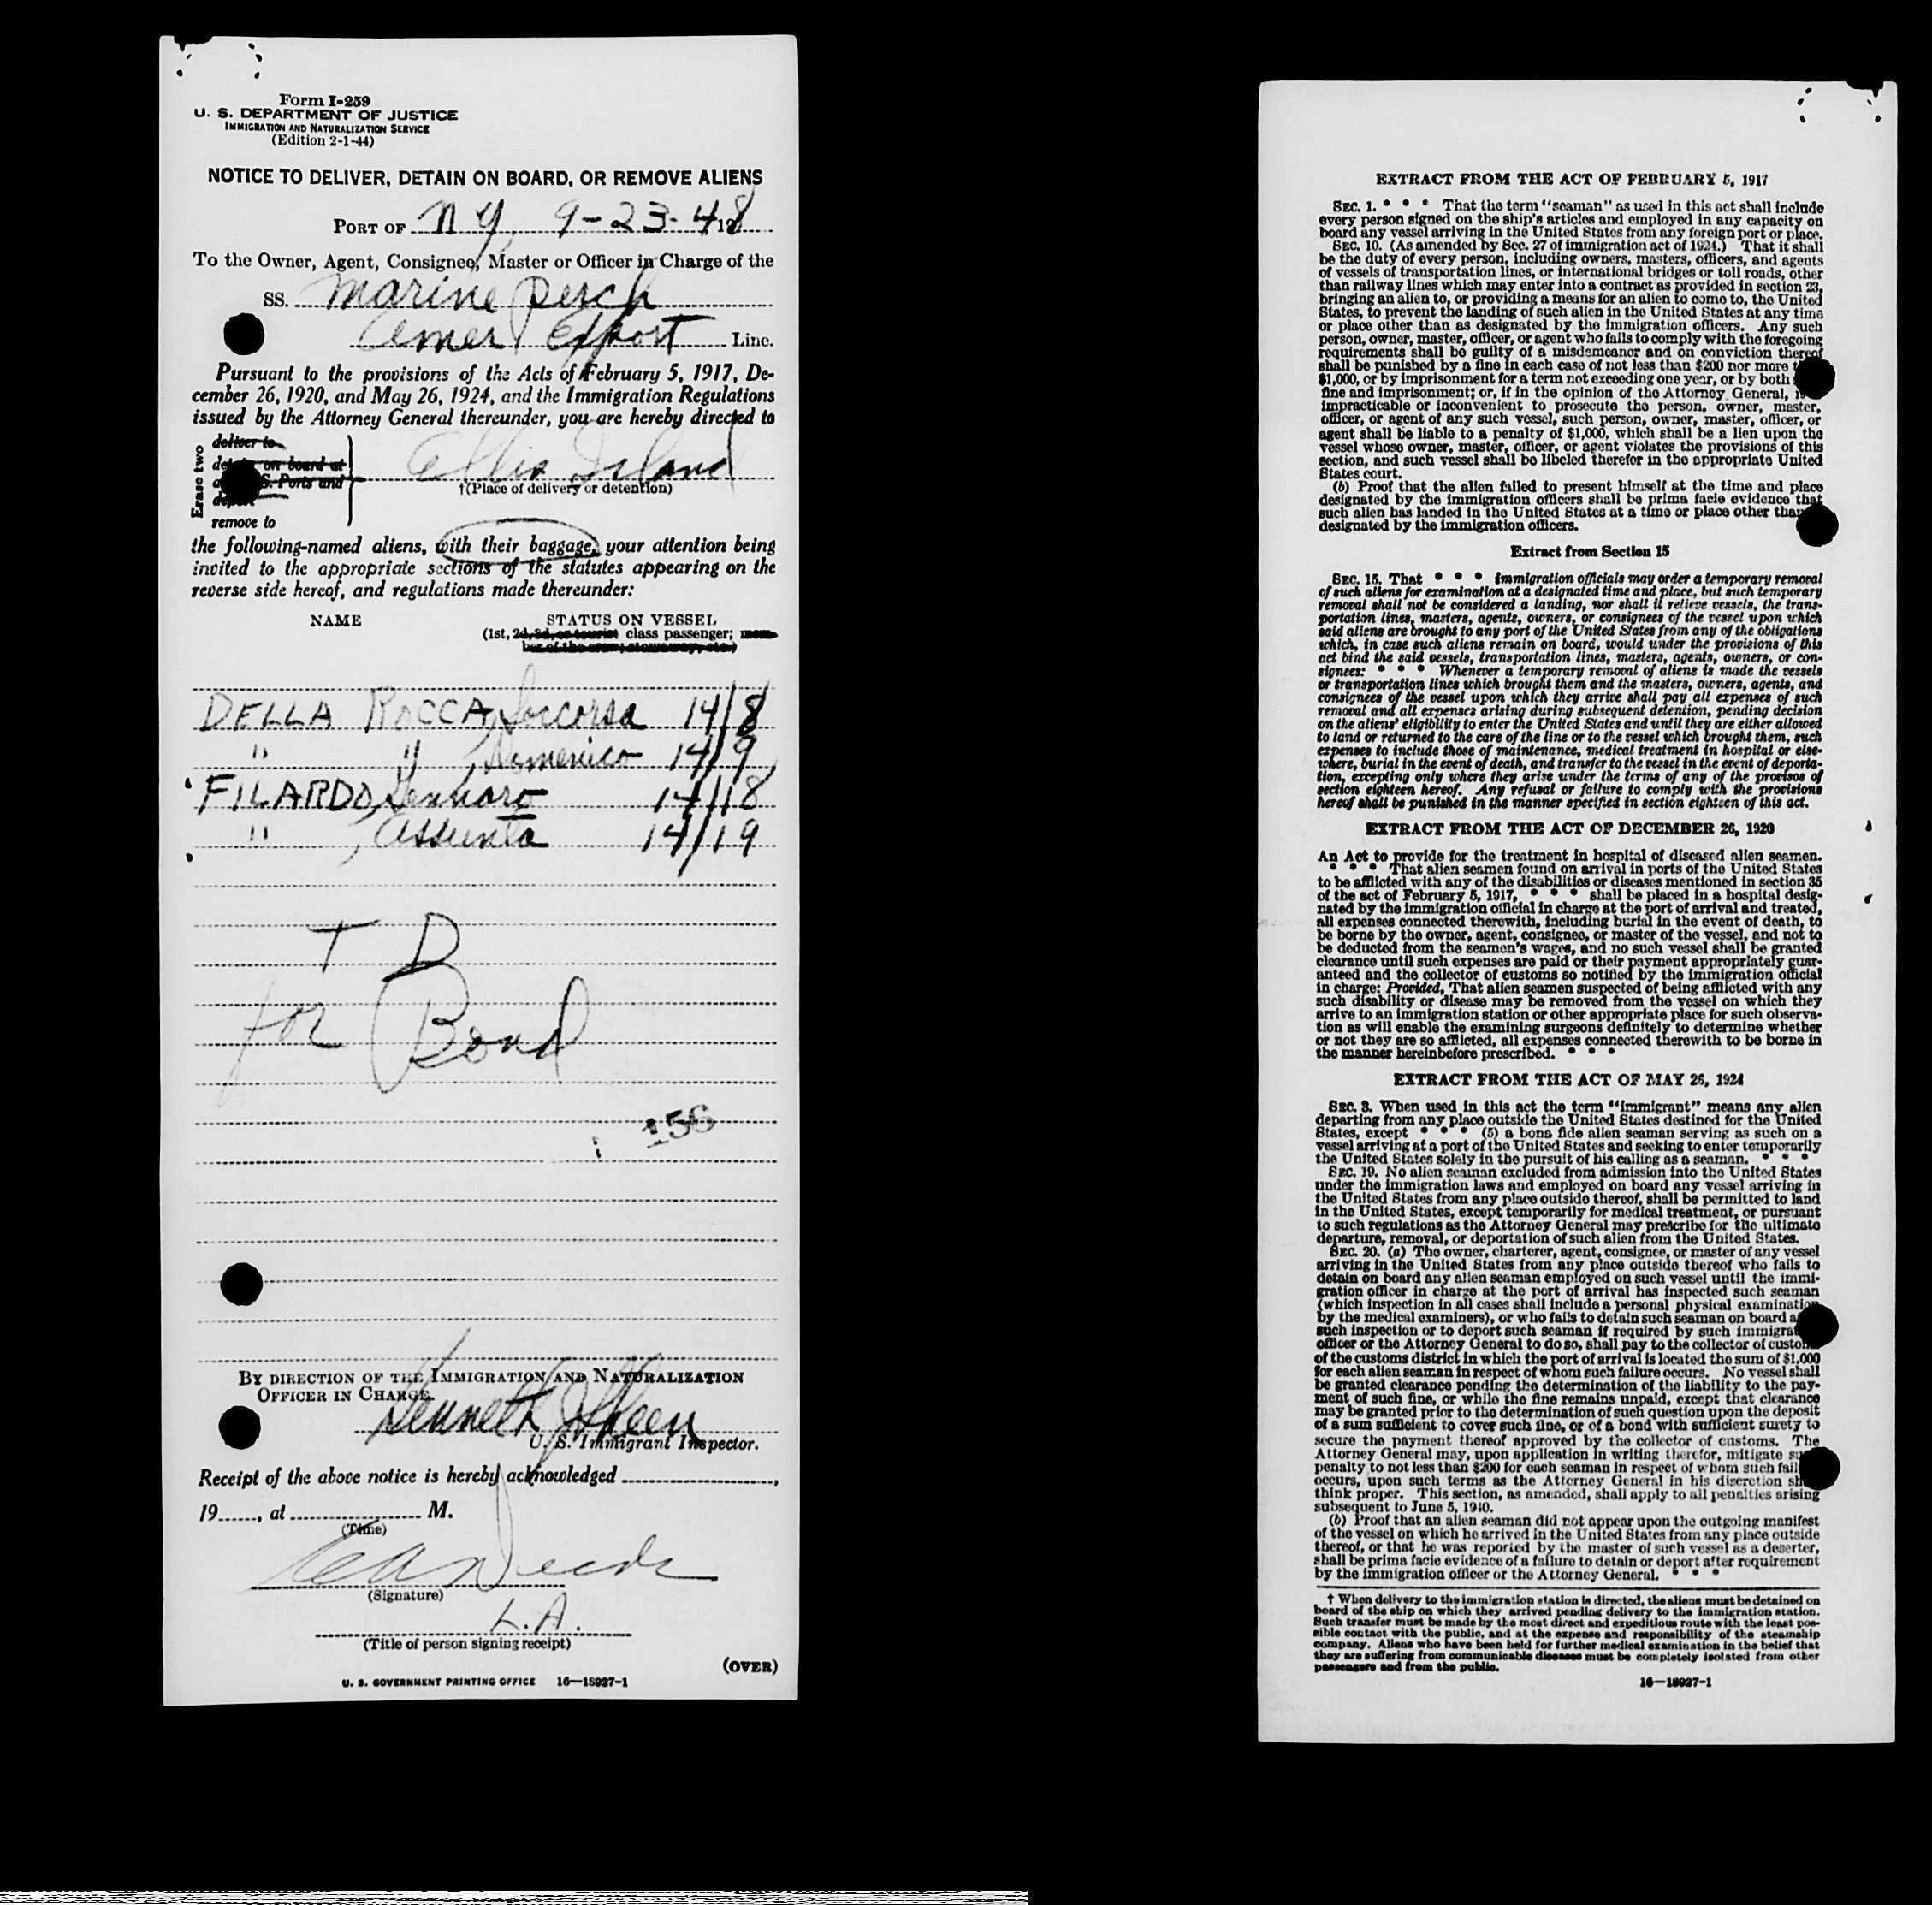 Form I-259
U. S. DEPARTMENT OF JUSTICE
IMMIGRATION AND NATURALIZATION SERVICE
(Edition 2-1-44)
NOTICE TO DELIVER, DETAIN ON BOARD, OR REMOVE ALIENS
PORT OF N Y, 9-23-48 19
To the Owner, Agent, Consignee, Master or Officer in Charge of the
SS. Marine Perch
Amer Export Line.
Pursuant to the provisions of the Acts of February 5, 1917, De-
cember 26, 1920, and May 26, 1924, and the Immigration Regulations
issued by the Attorney General thereunder, you are hereby directed to
Erase two
deliver to
on board at
S. Ports and
remove to
Ellis Island
†(Place of delivery or detention)
the following-named aliens, with their baggage, your attention being
invited to the appropriate sections of the statutes appearing on the
reverse side hereof, and regulations made thereunder:
NAME STATUS ON VESSEL
(1st, 2d, 3d, or tourist class passenger; mem-
ber of the crew; stowaway, etc.)
DELLA ROCCA, Soccorsa 14/8
" " , Domenico 14/9
FILARDO, Gennaro 14/18
" , Assunta 14/19
T D
for Bond
156
BY DIRECTION OF THE IMMIGRATION AND NATURALIZATION
OFFICER IN CHARGE.
Kenneth
U. S. Immigrant Inspector.
Receipt of the above notice is hereby acknowledged ,
19 , at M.
(Time)
(Signature)
L.A.
(Title of person signing receipt)
(OVER)
U. S. GOVERNMENT PRINTING OFFICE 16—18927-1
EXTRACT FROM THE ACT OF FEBRUARY 5, 1917
SEC. 1. * * * That the term "seaman" as used in this act shall include
every person signed on the ship's articles and employed in any capacity on
board any vessel arriving in the United States from any foreign port or place.
SEC. 10. (As amended by Sec. 27 of immigration act of 1924.) That it shall
be the duty of every person, including owners, masters, officers, and agents
of vessels of transportation lines, or international bridges or toll roads, other
than railway lines which may enter into a contract as provided in section 23,
bringing an alien to, or providing a means for an alien to come to, the United
States, to prevent the landing of such alien in the United States at any time
or place other than as designated by the immigration officers. Any such
person, owner, master, officer, or agent who fails to comply with the foregoing
requirements shall be guilty of a misdemeanor and on conviction thereof
shall be punished by a fine in each case of not less than $200 nor more
$1,000, or by imprisonment for a term not exceeding one year, or by both
fine and imprisonment; or, if in the opinion of the Attorney General,
impracticable or inconvenient to prosecute the person, owner, master,
officer, or agent of any such vessel, such person, owner, master, officer, or
agent shall be liable to a penalty of $1,000, which shall be a lien upon the
vessel whose owner, master, officer, or agent violates the provisions of this
section, and such vessel shall be libeled therefor in the appropriate United
States court.
(b) Proof that the alien failed to present himself at the time and place
designated by the immigration officers shall be prima facie evidence that
such alien has landed in the United States at a time or place other than
designated by the immigration officers.
Extract from Section 15
SEC. 15. That * * * immigration officials may order a temporary removal
of such aliens for examination at a designated time and place, but such temporary
removal shall not be considered a landing, nor shall it relieve vessels, the trans-
portation lines, masters, agents, owners, or consignees of the vessel upon which
said aliens are brought to any port of the United States from any of the obligations
which, in case such aliens remain on board, would under the provisions of this
act bind the said vessels, transportation lines, masters, agents, owners, or con-
signees: * * * Whenever a temporary removal of aliens is made the vessels
or transportation lines which brought them and the masters, owners, agents, and
consignees of the vessel upon which they arrive shall pay all expenses of such
removal and all expenses arising during subsequent detention, pending decision
on the aliens' eligibility to enter the United States and until they are either allowed
to land or returned to the care of the line or to the vessel which brought them, such
expenses to include those of maintenance, medical treatment in hospital or else-
where, burial in the event of death, and transfer to the vessel in the event of deporta-
tion, excepting only where they arise under the terms of any of the provisos of
section eighteen hereof. Any refusal or failure to comply with the provisions
hereof shall be punished in the manner specified in section eighteen of this act.
EXTRACT FROM THE ACT OF DECEMBER 26, 1920
An Act to provide for the treatment in hospital of diseased alien seamen.
* * * That alien seamen found on arrival in ports of the United States
to be afflicted with any of the disabilities or diseases mentioned in section 35
of the act of February 5, 1917, * * * shall be placed in a hospital desig-
nated by the immigration official in charge at the port of arrival and treated,
all expenses connected therewith, including burial in the event of death, to
be borne by the owner, agent, consignee, or master of the vessel, and not to
be deducted from the seamen's wages, and no such vessel shall be granted
clearance until such expenses are paid or their payment appropriately guar-
anteed and the collector of customs so notified by the immigration official
in charge: Provided, That alien seamen suspected of being afflicted with any
such disability or disease may be removed from the vessel on which they
arrive to an immigration station or other appropriate place for such observa-
tion as will enable the examining surgeons definitely to determine whether
or not they are so afflicted, all expenses connected therewith to be borne in
the manner hereinbefore prescribed. * * *
EXTRACT FROM THE ACT OF MAY 26, 1924
SEC. 3. When used in this act the term "immigrant" means any alien
departing from any place outside the United States destined for the United
States, except * * * (5) a bona fide alien seaman serving as such on a
vessel arriving at a port of the United States and seeking to enter temporarily
the United States solely in the pursuit of his calling as a seaman. * * *
SEC. 19. No alien seaman excluded from admission into the United States
under the immigration laws and employed on board any vessel arriving in
the United States from any place outside thereof, shall be permitted to land
in the United States, except temporarily for medical treatment, or pursuant
to such regulations as the Attorney General may prescribe for the ultimate
departure, removal, or deportation of such alien from the United States.
SEC. 20. (a) The owner, charterer, agent, consignee, or master of any vessel
arriving in the United States from any place outside thereof who fails to
detain on board any alien seaman employed on such vessel until the immi-
gration officer in charge at the port of arrival has inspected such seaman
(which inspection in all cases shall include a personal physical examination
by the medical examiners), or who fails to detain such seaman on board
such inspection or to deport such seaman if required by such
officer or the Attorney General to do so, shall pay to the collector of customs
of the customs district in which the port of arrival is located the sum of $1,000
for each alien seaman in respect of whom such failure occurs. No vessel shall
be granted clearance pending the determination of the liability to the pay-
ment of such fine, or while the fine remains unpaid, except that clearance
may be granted prior to the determination of such question upon the deposit
of a sum sufficient to cover such fine, or of a bond with sufficient surety to
secure the payment thereof approved by the collector of customs. The
Attorney General may, upon application in writing therefor, mitigate
penalty to not less than $200 for each seaman in respect of whom such
occurs, upon such terms as the Attorney General in his discretion
think proper. This section, as amended, shall apply to all penalties arising
subsequent to June 5, 1940.
(b) Proof that an alien seaman did not appear upon the outgoing manifest
of the vessel on which he arrived in the United States from any place outside
thereof, or that he was reported by the master of such vessel as a deserter,
shall be prima facie evidence of a failure to detain or deport after requirement
by the immigration officer or the Attorney General. * * *
† When delivery to the immigration station is directed, the aliens must be detained on
board of the ship on which they arrived pending delivery to the immigration station.
Such transfer must be made by the most direct and expeditious route with the least pos-
sible contact with the public, and at the expense and responsibility of the steamship
company. Aliens who have been held for further medical examination in the belief that
they are suffering from communicable diseases must be completely isolated from other
passengers and from the public.
16—18927-1